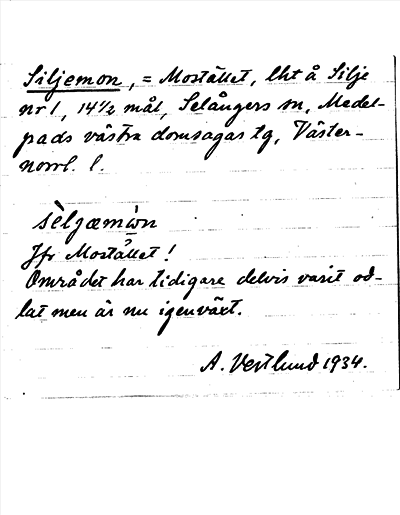 Siljemon, = Mostället, lht å Silje
nr 1, 14½ mål, Selångers sn, Medel-
pads västra domsagas tg, Väster-
norrl. l.
sèljæmὼn
Jfr Mostället!
Området har tidigare delvis varit od-
lat men är nu igenväxt.
A. Vestlund 1934.